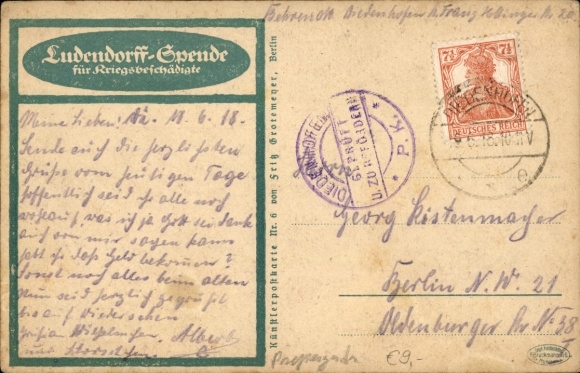 Ludendorff-Spende
für Kriegsbeschädigte
Meine Lieben! 18.6.18.
Sende euch die herzlichsten
Grüße vom heutigen Tage
hoffentlich seid ihr alle noch
wohlauf, was ich ja Gott sei Dank
auch von mir sagen kann
habt ihr das Geld bekommen?
Sonst noch alles beim alten
Nun seid herzlich gegrüßt
bis auf Wiedersehen
Albert
und
Künstlerpostkarte Nr. 6 von Fritz Grotemeyer, Berlin
Diedenhofen Franz Nr. 20
7½ 7½
DEUTSCHES REICH
DIEDENHOFEN
e
GEPRÜFT
U. ZU BEFÖRDERN
* P. K. *
Georg Kistenmacher
Berlin N.W. 21
Oldenburger Str Nr 38
Propaganda €9,-